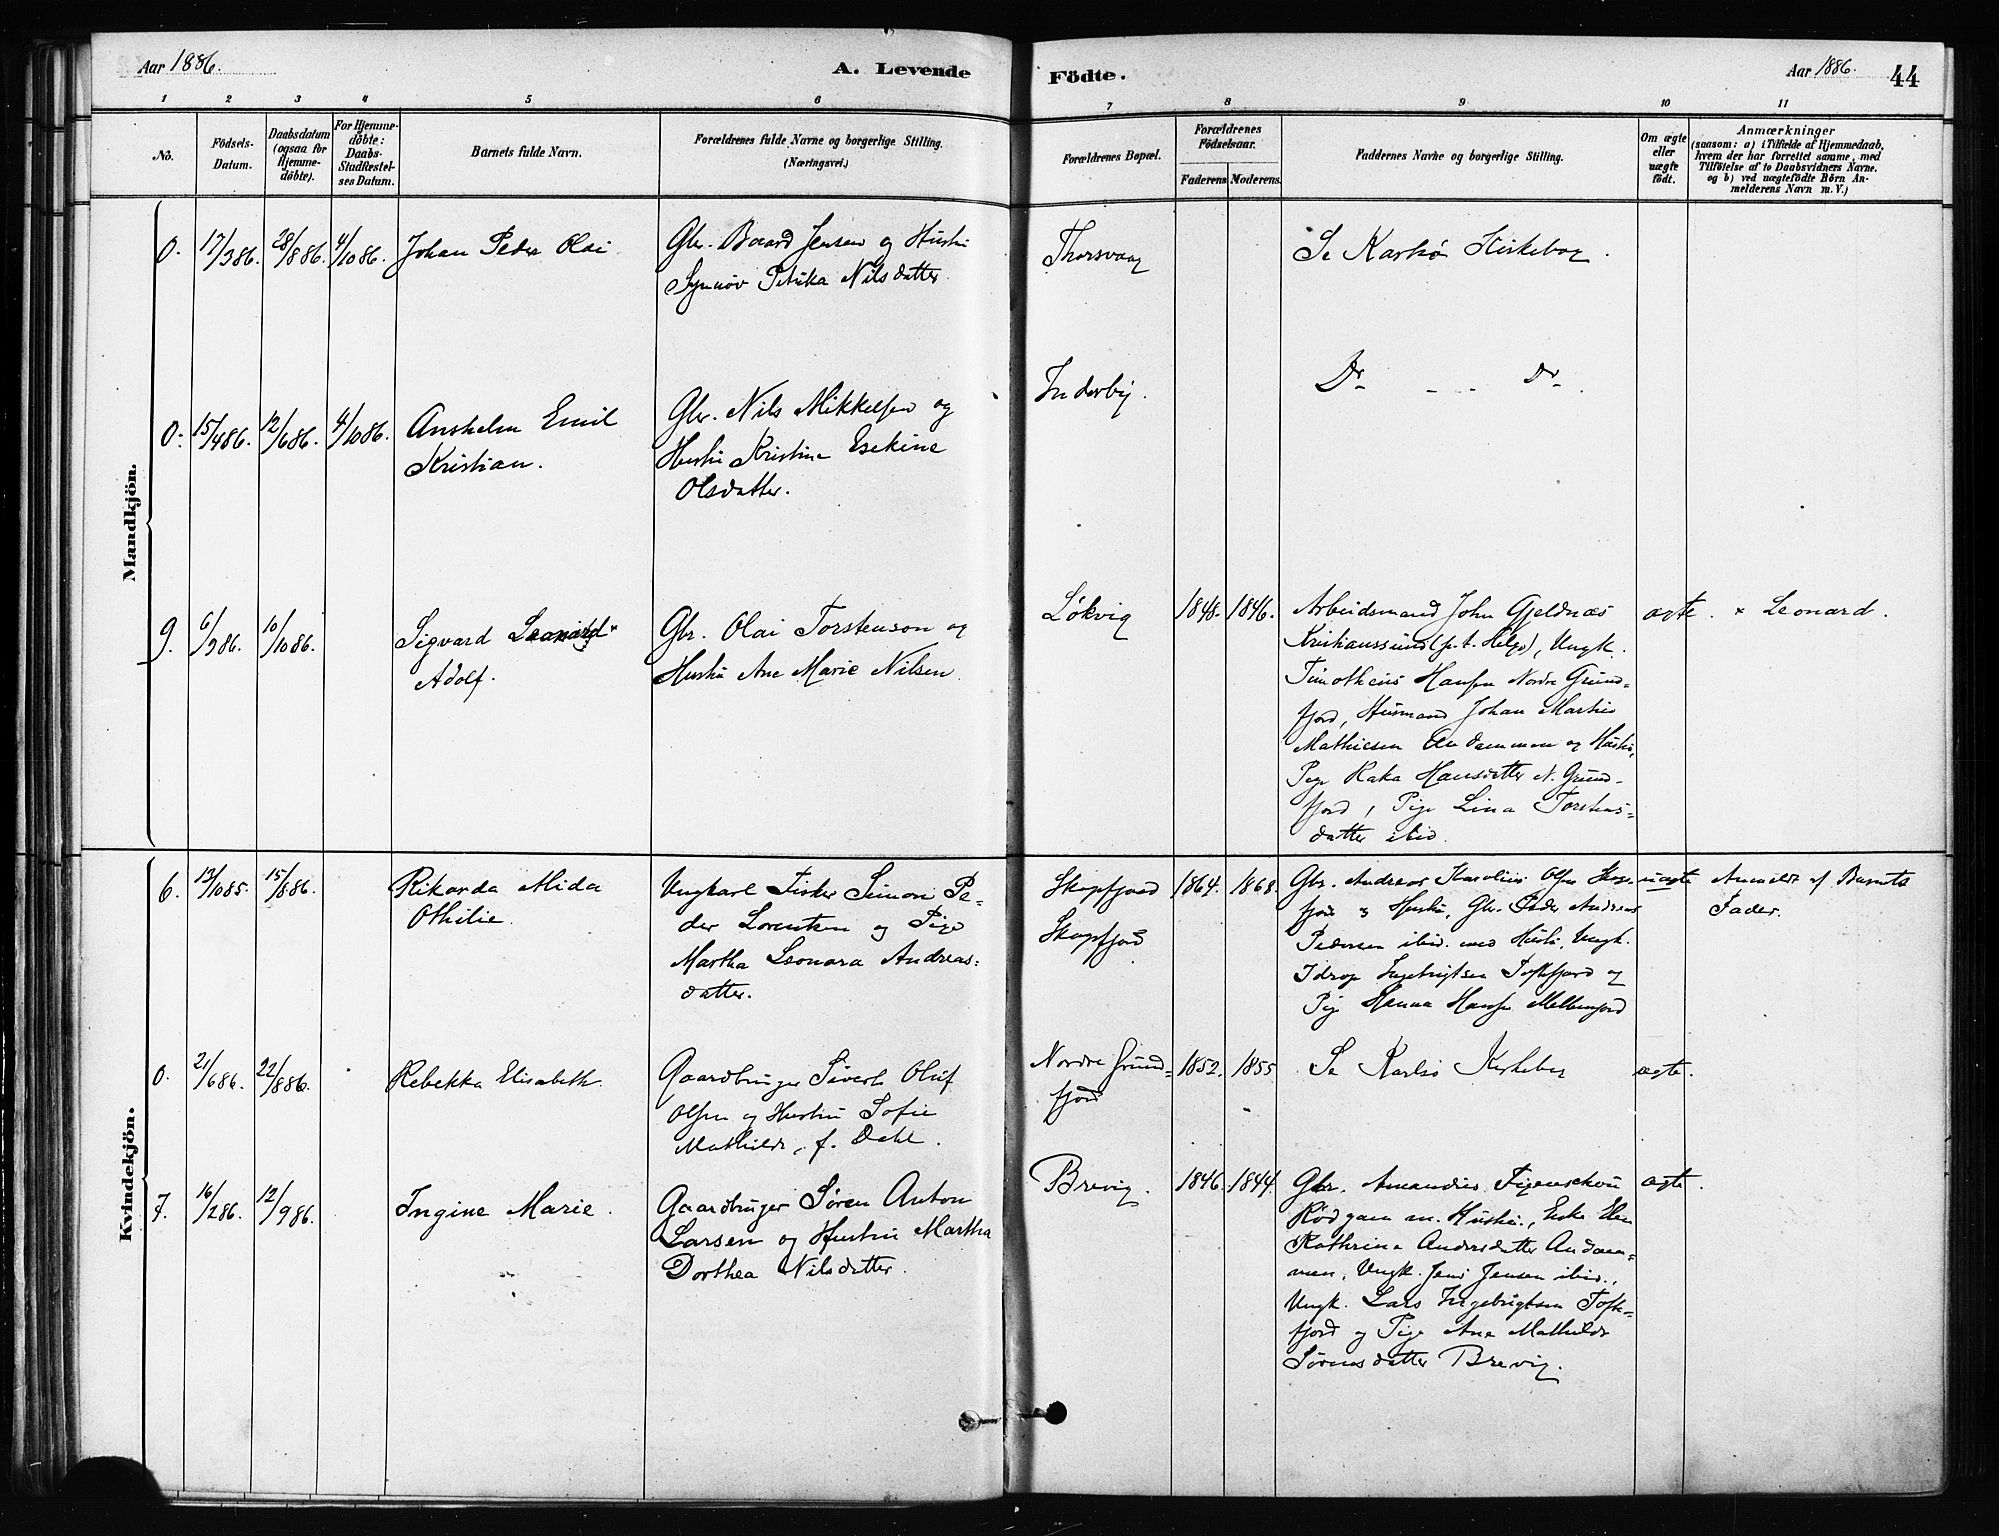 Aar 1886.
A. Levende
Födte.
Aar 1886.
44
1 2 3 4 5 6 7 8 9 10 11
No.
Födsels-
Datum.
Daabsdatum
(ogsaa for
Hjemme-
döbte).
For Hjemme-
döbte:
Daabs-
Stadfæstel-
ses Datum.
Barnets fulde Navn.
Forældrenes fulde Navne og borgerlige Stilling.
(Næringsvei.)
Forældrenes Bopæl.
Forældrenes
Födselsaar.
Faderens
Moderens
Faddernes Navne og borgerlige Stilling.
Om ægte
eller
uægte
födt.
Anmærkninger
(saasom: a) i Tilfælde af Hjemmedaab,
hvem der har forrettet samme, med
Tilföielse af to Daabsvidners Navne.
og b) ved uægtefödte Börn An-
melderens Navn m. V.)
Mandkjön.
0. 17/386. 28/886. 4/1086.
Johan Peder Olai
Gbr. Baard Jensen og Hustru
Synnøv Petrika Nilsdatter.
Thorsvaag
Se Karlsø Kirkebog.
0. 15/486. 12/686. 4/1086.
Anshelm Emil
Kristian.
Gbr. Nils Mikkelsen og
Hustru Kristine Esekine
Olsdatter.
Inderby.
Do - - Do
9. 6/386. 10/1086.
Sigvard Leonard ×
Adolf.
Gbr. Olai Torstenson og
Hustru Ane Marie Nilsen
Løkvig
1848. 1846.
Arbeidsmand John Gjeldnæs
Kristianssund (p.t. Helgø), Ungk.
Timotheus Hansen Nordre Grund=
fjord, Husmand Johan Martin
Mathiesen Andammen og Hustru,
Pige Raka Hansdatter N. Grund-
fjord, Pige Lina Torstens=
datter ibid.
ægte.
× Leonard.
Kvindekjön.
6. 13/1085. 15/886.
Rikarda Alida
Othilie.
Ungkarl Fisker Simon Pe-
der Lorentsen og Pige
Martha Leonara Andreas=
datter.
Skogsfjord
Skogsfjord
1864. 1868.
Gbr. Andreas Karolius Olsen Skogs=
fjord og Hustru, Gbr. Peder Andreas
Pedersen ibid. med Hustru, Ungk.
Ingebrigtsen Toftefjord og
Pige Hanna Hansen Mellemfjord
uægte
Anmeldt af Barnets
Fader.
0. 21/686. 22/886.
Rebekka Elisabeth.
Gaardbruger Sivert Oluf
Olsen og Hustru Sofie
Mathilde, f. Dahl.
Nordre Grund=
fjord
1852. 1855.
Se Karlsø Kirkebog
ægte.
7. 16/286. 12/986.
Ingine Marie.
Gaardbruger Søren Anton
Larsen og Hustru Martha
Dorthea Nilsdatter.
Brevig.
1846. 1844.
Gbr. Amandus Figenschou
Rødgam m. Hustru, Enke Elen
Kathrina Andersdatter Andam-
men, Ungk. Jens Jensen ibid.,
Ungk. Lars Ingebrigtsen Toft=
fjord og Pige Ane Mathilde
Sørensdatter Brevig.
ægte.